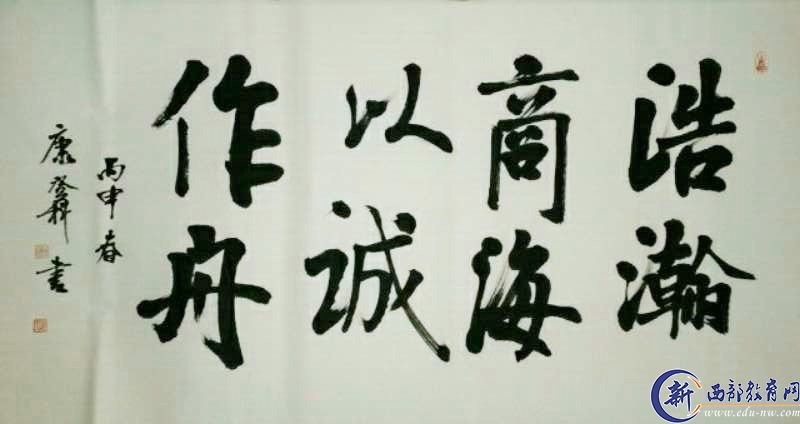 浩瀚
商海
以诚
作舟
丙申春
康登科书
新西部教育网
www.edu-nw.com